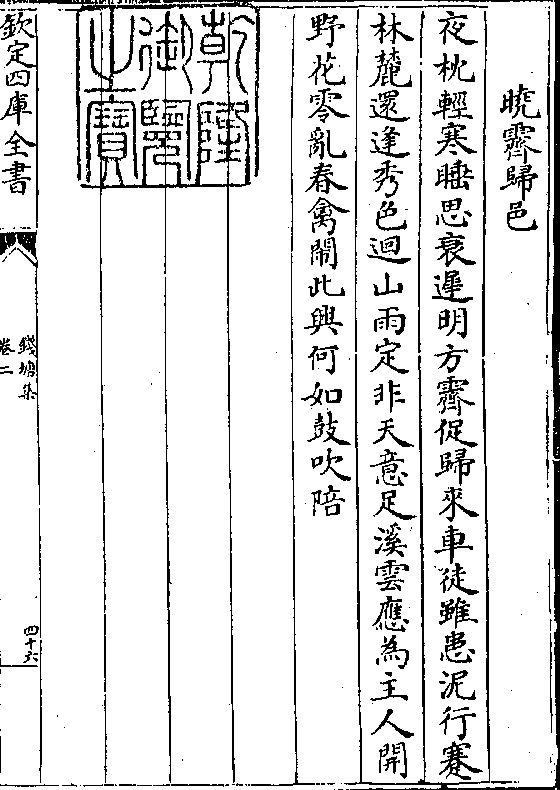 曉霽歸邑
夜枕輕寒睡思衰遲明方霽促歸來車徒雖患泥行蹇
林麓還逢秀色迴山雨定非天意足溪雲應為主人開
野花零亂春禽鬧此興何如鼓吹陪
乾隆御覽之寶
欽定四庫全書
錢塘集
卷二
四十六